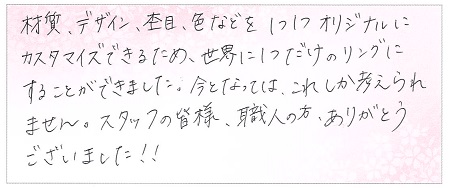 材質、デザイン、杢目、色などを1つ1つオリジナルに
カスタマイズできるため、世界に1つだけのリングに
することができました。今となっては、これしか考えられ
ません。スタッフの皆様、職人の方、ありがとう
ございました!!